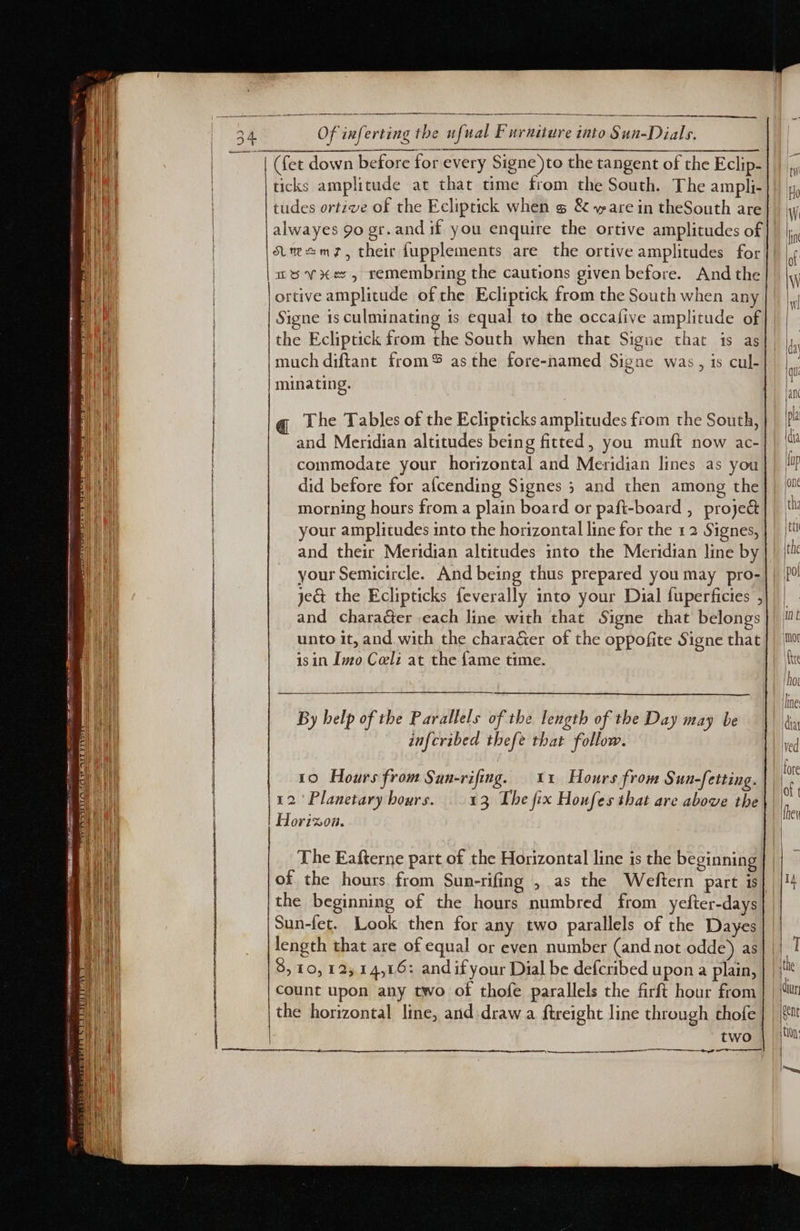 34 Of inſerting the uſual Furniture into Sun-Dials.
(ſet down before for every Signe)to the tangent of the Eclip-
ticks amplitude at that time from the South. The ampli-
tudes ortive of the Ecliptick when ♋ & ♑ are in theSouth are
alwayes 90 gr. and if you enquire the ortive amplitudes of
♌♍♎♏♐, their ſupplements are the ortive amplitudes for
♊♉♈♓♒, remembring the cautions given before. And the
ortive amplitude of the Ecliptick from the South when any
Signe is culminating is equal to the occaſive amplitude of
the Ecliptick from the South when that Signe that is as
much diſtant from ♋ as the fore-named Signe was, is cul-
minating.
¶ The Tables of the Eclipticks amplitudes from the South,
and Meridian altitudes being fitted, you muſt now ac-
commodate your horizontal and Meridian lines as you
did before for aſcending Signes; and then among the
morning hours from a plain board or paſt-board, project
your amplitudes into the horizontal line for the 12 Signes,
and their Meridian altitudes into the Meridian line by
your Semicircle. And being thus prepared you may pro-
ject the Eclipticks ſeverally into your Dial ſuperficies,
and character each line with that Signe that belongs
unto it, and with the character of the oppoſite Signe that
is in Imo Cœli at the ſame time.
By help of the Parallels of the length of the Day may be
inſcribed theſe that follow.
10 Hours from Sun-riſing. 11 Hours from Sun-ſetting.
12 Planetary hours. 13 The ſix Houſes that are above the
Horizon.
The Eaſterne part of the Horizontal line is the beginning
of the hours from Sun-riſing, as the Weſtern part is
the beginning of the hours numbred from yeſter-days
Sun-ſet. Look then for any two parallels of the Dayes
length that are of equal or even number (and not odde) as
8, 10, 12, 14, 16: and if your Dial be deſcribed upon a plain,
count upon any two of thoſe parallels the firſt hour from
the horizontal line, and draw a ſtreight line through thoſe
two